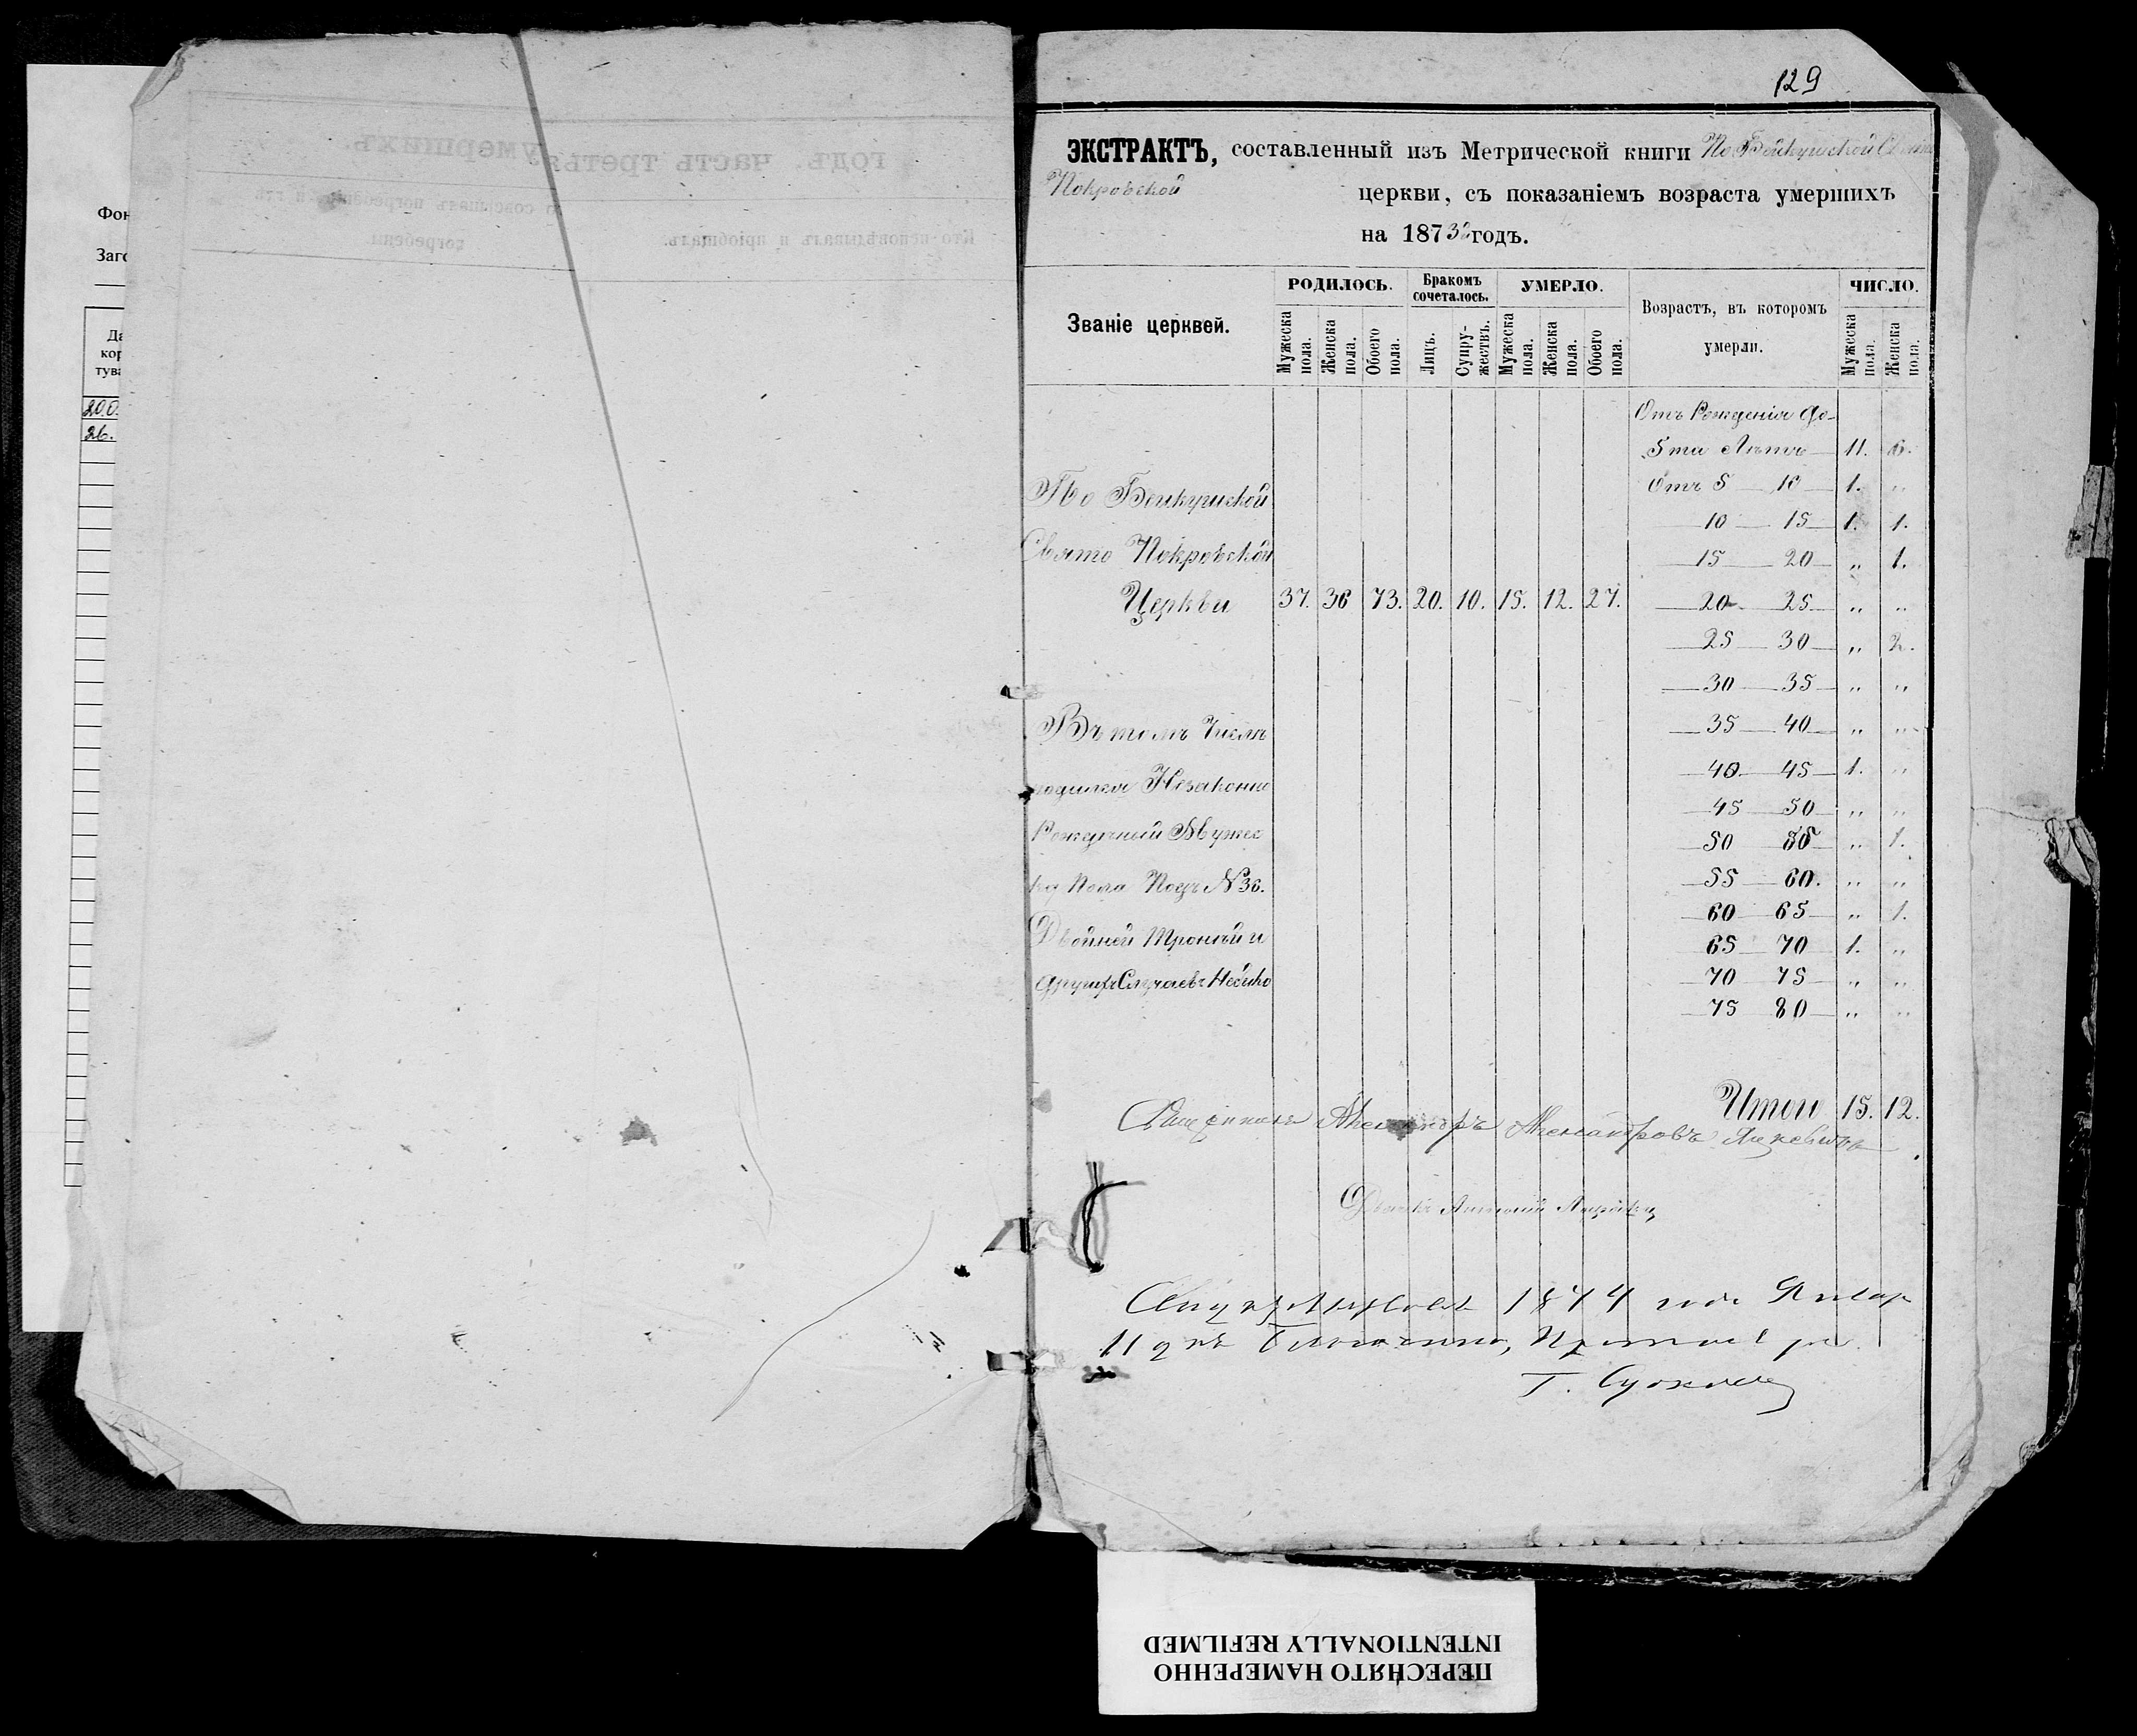 Фон
Заго
Да
кор
тува
20.0
26.
129
ЭКСТРАКТЪ, составленный изъ Метрической книги По Бейкушской Свято
Покровской
церкви, съ показаніемъ возраста умершихъ
на 1873 годъ.
Званіе церквей.
РОДИЛОСЬ.
Мужеска пола.
Женска пола.
Обоего пола.
Бракомъ сочеталось.
Лицъ.
Супру-жествъ.
УМЕРЛО.
Мужеска пола.
Женска пола.
Обоего пола.
Возрастъ, въ которомъ
умерли.
ЧИСЛО.
Мужеска пола.
Женска пола.
Отъ Рожденія до
5ти Лѣтъ 11. 6.
По Бейкушской
Отъ 5 10 1. „
10 15 1. 1.
Свято Покровской
15 20 „ 1.
Церкви 37. 36 73. 20. 10. 15. 12. 27.
20 25 „ „
25 30 „ 2.
30 35 „ „
Въ томъ Числѣ
35 40 „ „
родился Незаконно
40 45 1. „
45 50 „ „
Рожденый Мужес
50 55 „ 1.
ка Пола Подъ № 36.
55 60. „ „
60 65 „ 1.
Двойней Тройней и
65 70 1. „
другихъ Случаевъ Небыло
70 75 „ „
75 80 „ „
Итого 15. 12.
Священникъ Александръ Александровъ
Дьячекъ Антоній
1874 года Январ
11 дня
ПЕРЕСНЯТО НАМЕРЕННО
INTENTIONALLY REFILMED